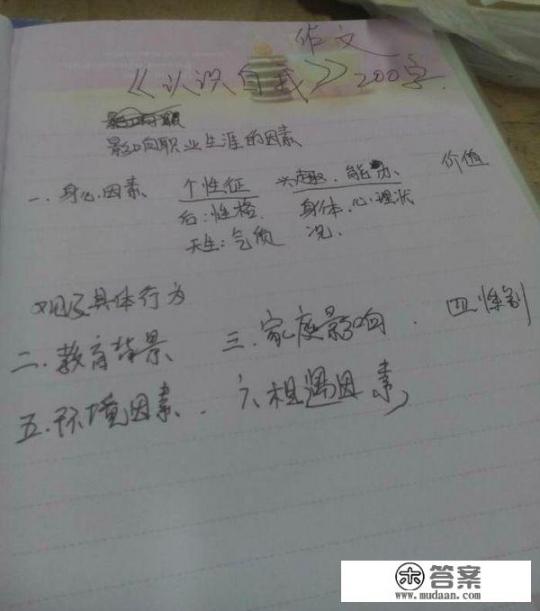 作文
《认识自我》200字
影响职业生涯的因素
一.身心因素 个性征 兴趣.能力、 价值
后:性格. 身体.心理状
天生:气质 况.
观及具体行为
二.教育背景 三.家庭影响. 四.性别
五.环境因素. 六.相遇因素
答案
www.mudaan.com